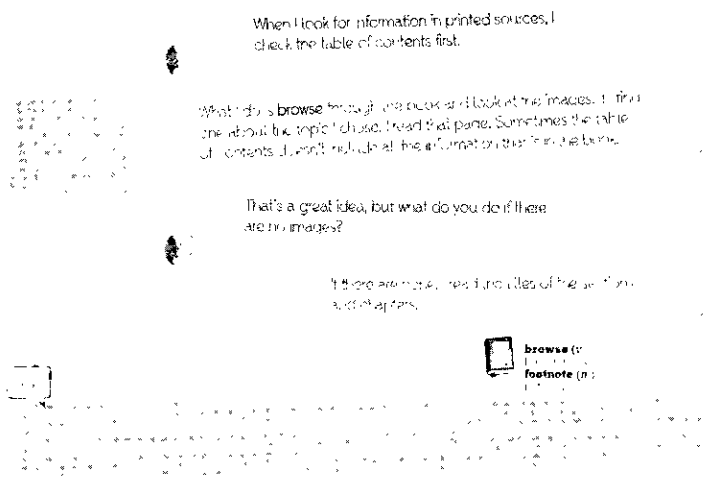 When I look for information in printed sources, I
check the table of contents first.
What I do is browse through the book and look at the images. If I find
one about the topic I chose, I read that page. Sometimes the table
of contents doesn't include all the information that is in the book.
That's a great idea, but what do you do if there
are no images?
If there are none, I read the titles of the sections
and chapters.
browse (v
footnote (n